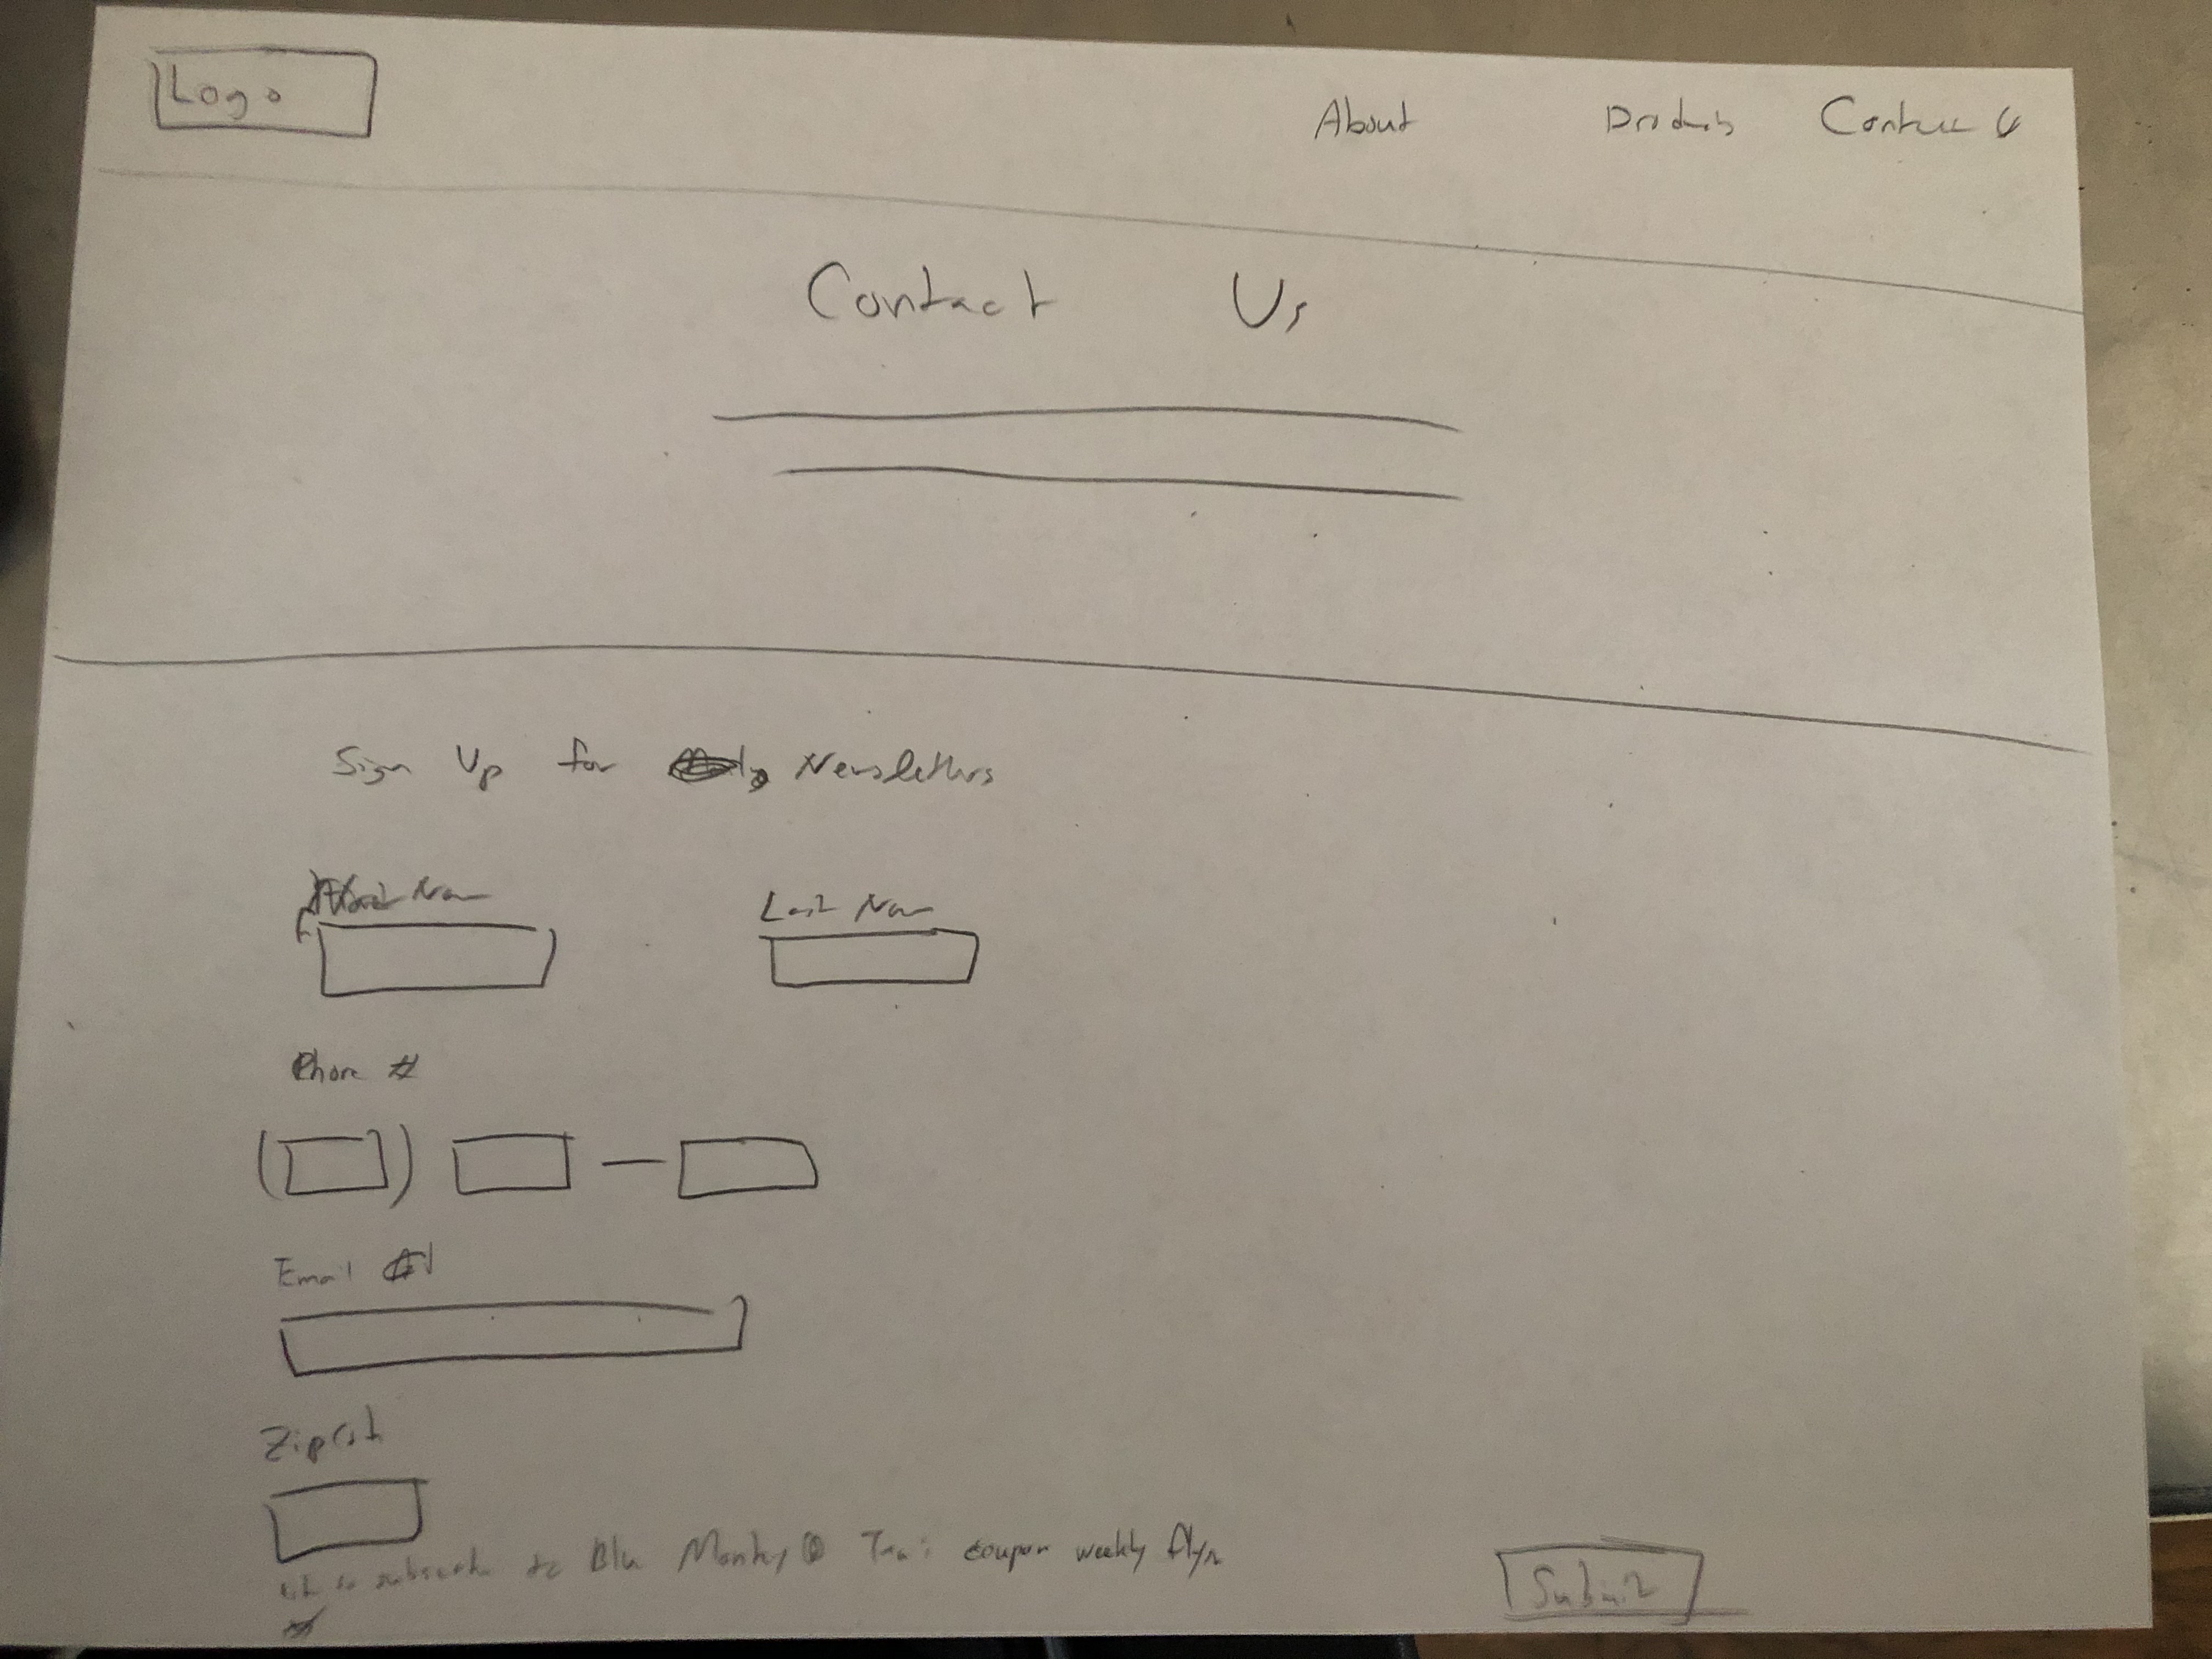 Logo About Products Contact Us
Contact Us
Sign Up for Newsletters
First Nam Last Nam
Phone #
Email
Zipcode
to subscribe to Blu Monkey Tai coupon weekly flyr
Submit